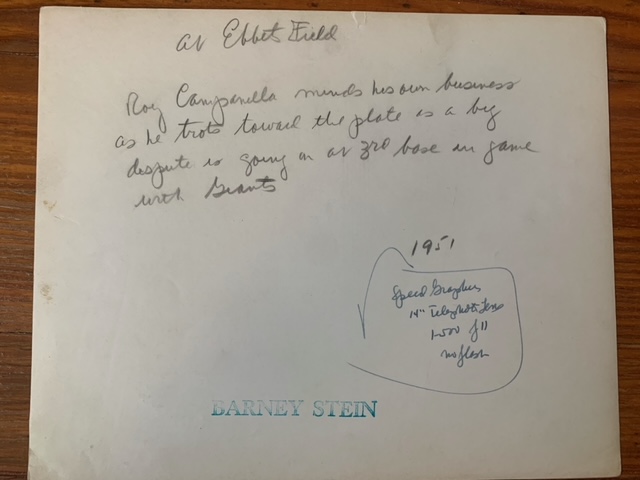 at Ebbets Field
Roy Campanella minds his own business
as he trots toward the plate as a big
dispute is going on at 3rd base in game
with Giants
1951
Speed Graphic
14" Telephoto Lens
1-500 f 11
no flash
BARNEY STEIN